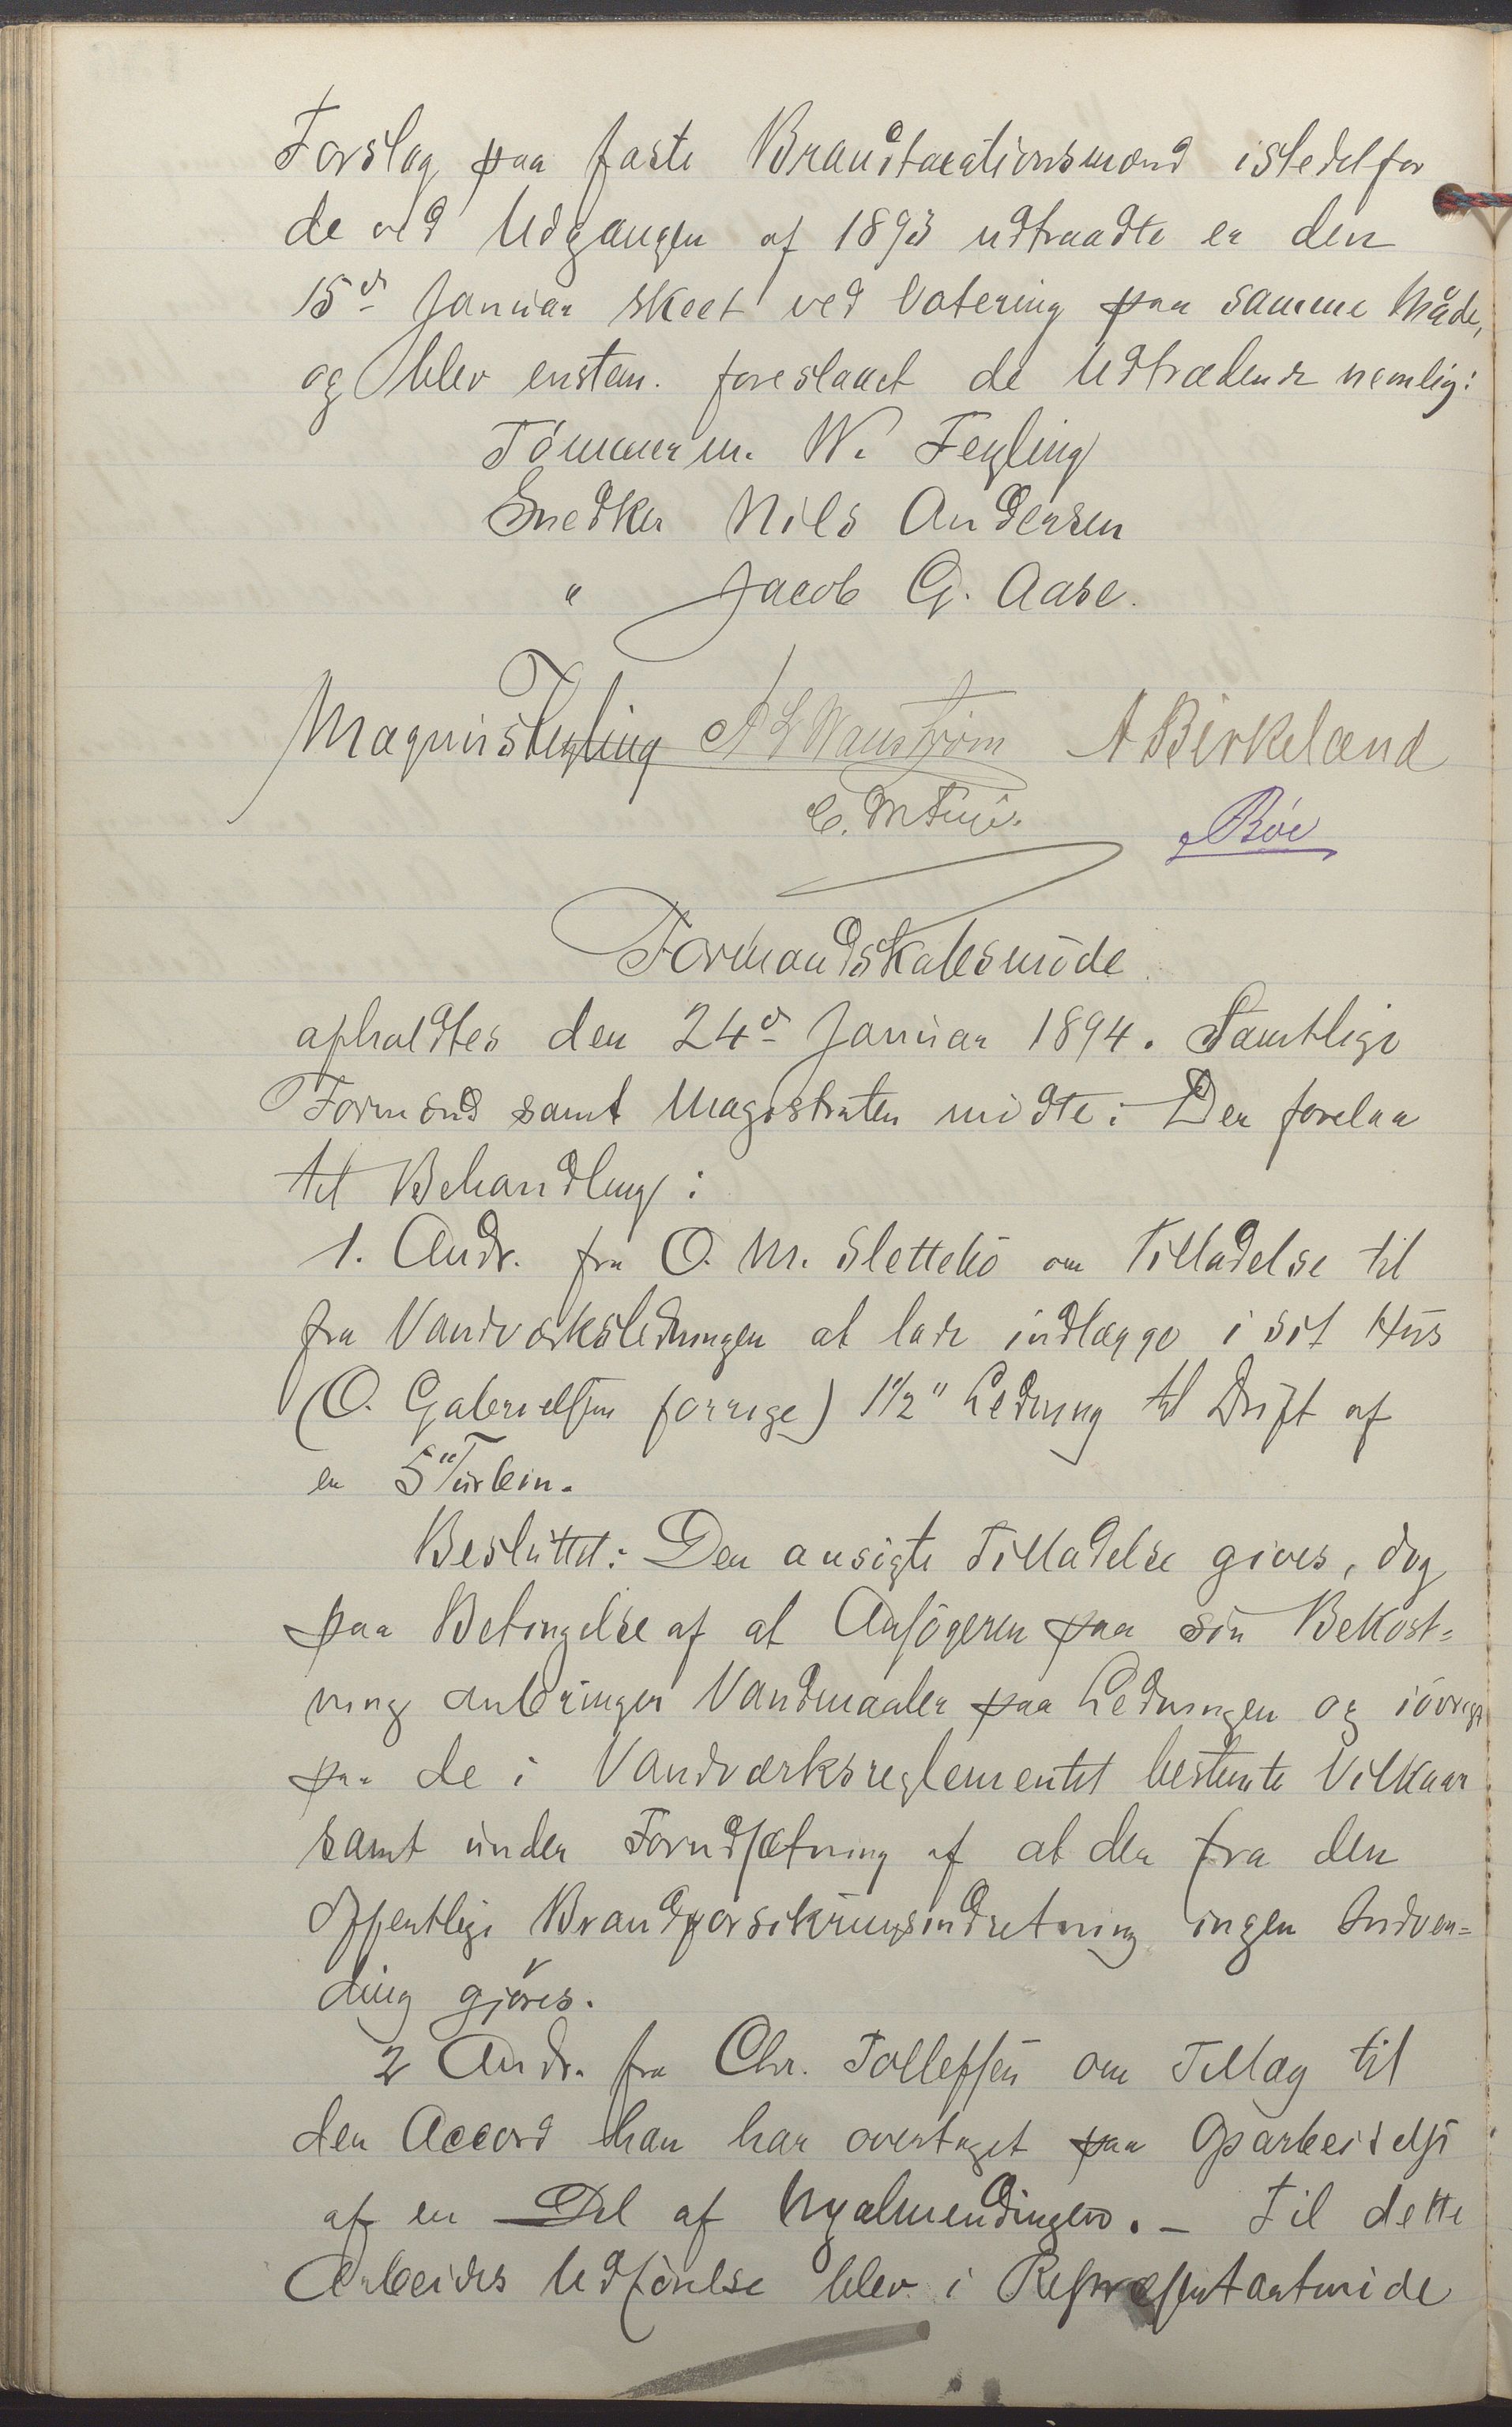 Forslag paa faste Brandtaxationsmænd istedetfor
de ved Udgangen af 1893 udtraadte er den
15d Januar skeet ved Votering paa samme Måde,
og blev enstem. foreslaaet de Udtrædende nemlig:
Tömmerm. W. Feyling
Snedker Nils Andersen
" Jacob G. Aase.
Magnus Feyling A L Wanström A Birkeland
C. Röe
Formandskabsmöde
apholdtes den 24d Januar 1894. Samtlige
Formænd samt Magistraten mödte: Der forelaa
til Behandling:
1. Andr. fra O. M. Slettebö om Tilladelse til
fra Vandværksledningen at lade indlægge i sit Hus
(O. Gabrielsen forrige) 1 1/2" Ledning til Drift af
en 5" Turbin.
Besluttet: Den ansögte Tilladelse gives, dog
paa Betingelse af at Ansögeren paa sin Bekost=
ning anbringer Vandmaaler paa Ledningen og iövrigt
paa de i Vandværksreglementet bestemte Vilkaar
samt under Forudsætning af at der fra den
offentlige Brandforsikringsindretning ingen Indven=
ding gjöres.
2 Andr. fra Chr. Tollefsen om Tillæg til
den Accord han har overtaget paa Oparbeidelse
af en Del af Nyalmendingen. - Til dette
Arbeides Udförelse blev i Repræsentantmöde